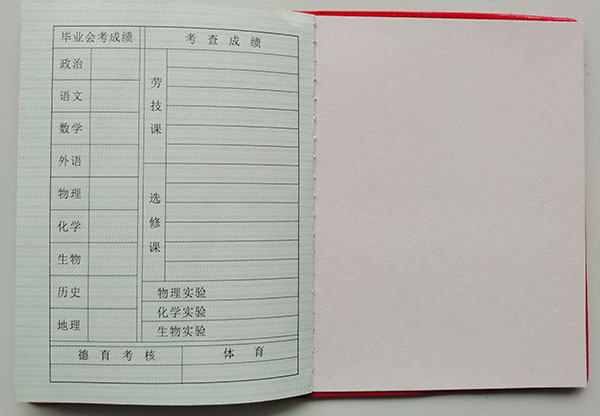 毕业会考成绩 考查成绩
政治
语文
数学
外语
物理
化学
生物
历史
地理
劳技课
选修课
物理实验
化学实验
生物实验
德育考核 体育